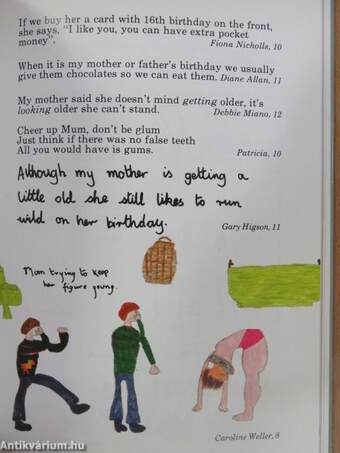 If we buy her a card with 16th birthday on the front,
she says, "I like you, you can have extra pocket
money".
Fiona Nicholls, 10
When it is my mother or father's birthday we usually
give them chocolates so we can eat them. Diane Allan, 11
My mother said she doesn't mind getting older, it's
looking older she can't stand.
Debbie Miano, 12
Cheer up Mum, don't be glum
Just think if there was no false teeth
All you would have is gums.
Patricia, 10
Although my mother is getting a
little old she still likes to run
wild on her birthday.
Gary Higson, 11
Mom trying to keep
her figure young.
Caroline Weller, 8
Antikvárium.hu